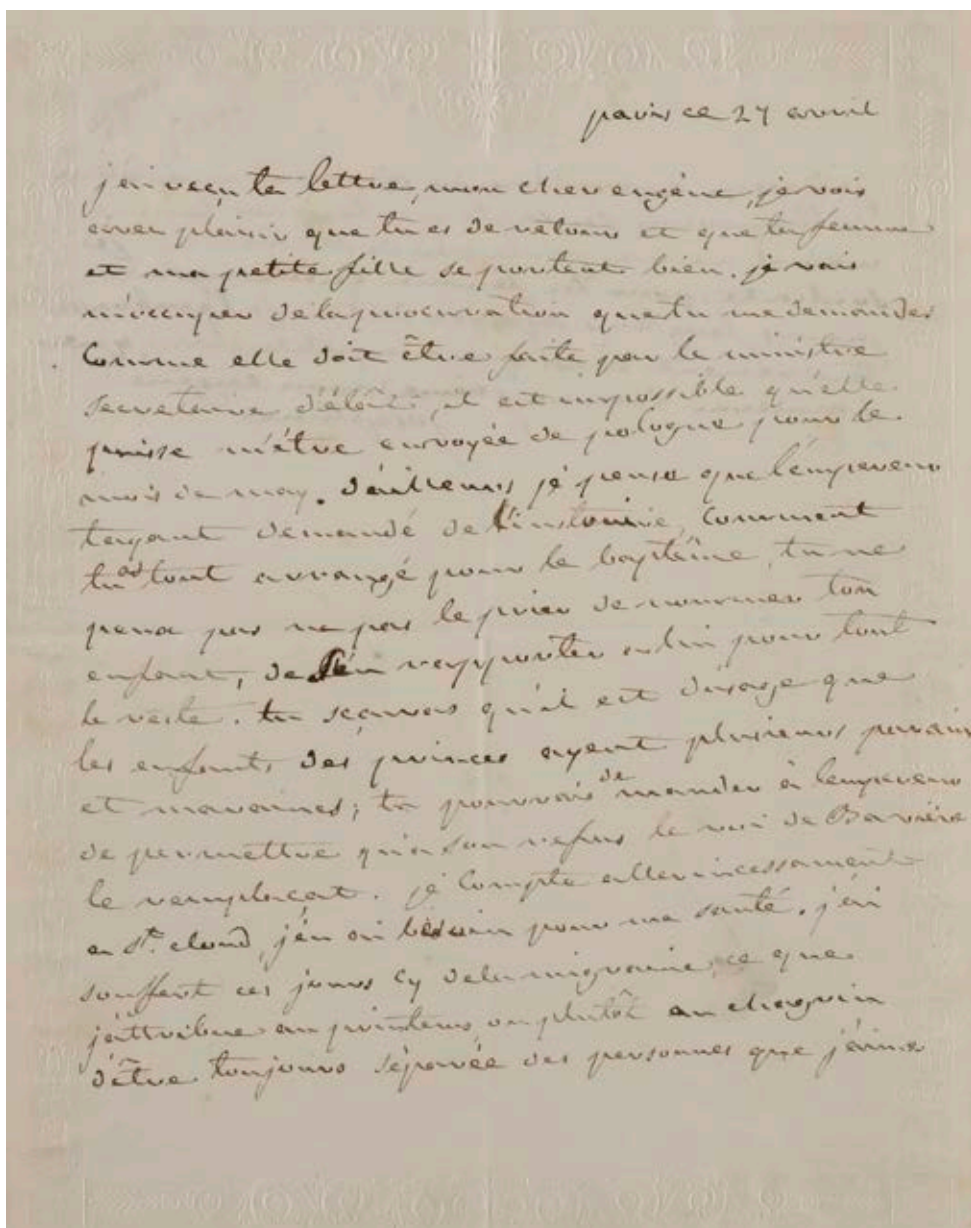 paris ce 27 avril
j'ai reçu ta lettre, mon cher eugène, je vois
avec plaisir que tu es de retour et que ta femme
et ma petite fille se portent bien. je vais
m'occuper de la procuration que tu me demandes
Comme elle doit être faite par le ministre
secretaire d'état, il est impossible qu'elle
puisse m'être envoyée de pologne pour le
mois de may. d'ailleurs je pense que l'empereur
t'ayant demandé de l'instruire, Comment
tu as tout arrangé pour le baptême, tu ne
peux pas ne pas le prier de nommer ton
enfant, de s'en rapporter à lui pour tout
le reste. tu sçauras qu'il est d'usage que
les enfants des princes ayent plusieurs parains
et maraines; tu pourrais demander à l'empereur
de permettre qu'a son refus le roi de Bavière
le remplacat. je Compte aller incessament
a St. cloud, j'en ai besoin pour ma santé. j'ai
souffert ces jours cy de la migraine, ce que
j'attribue au printems ou plutôt au chagrin
d'être toujours séparée des personnes que j'aime